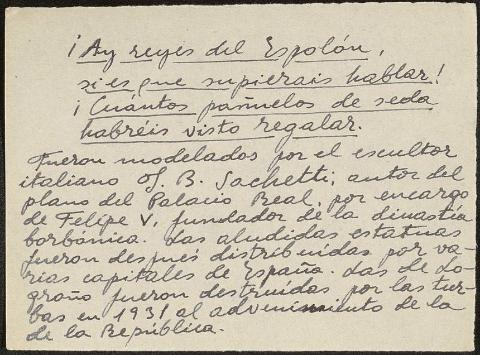 ¡Ay reyes del Espolón,
si es que supierais hablar!
¡Cuántos pañuelos de seda
habréis visto regalar.
Fueron modelados por el escultor
italiano J. B. Sachetti; autor del
plano del Palacio Real, por encargo
de Felipe V, fundador de la dinastía
borbónica. Las aludidas estatuas
fueron después distribuídas por va-
rias capitales de España. Las de Lo-
groño fueron destruídas por las tur-
bas en 1931 al advenimiento de la
de la República.